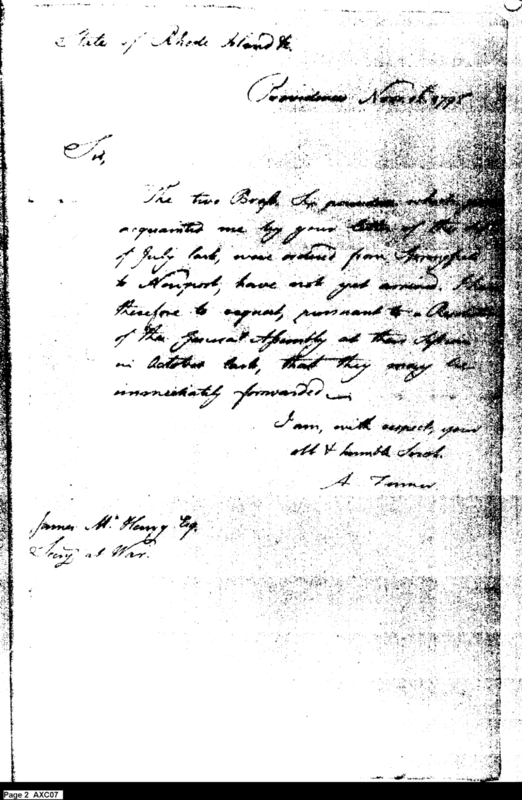 State of Rhode Island &c.
Providence Nov.
Sir,
The two Brass Six pounders which you
acquainted me by your letter of the
of July last, were ordered from Springfield
to Newport, have not yet arrived. I have
therefore to request, pursuant to a Resolution
of the General Assembly at their Session
in October last, that they may be
immediately forwarded
I am, with respect, your
obt & humble Servt.
A. Fenner
James Mc Henry Esq.
Secry at War.
Page 2 AXC07